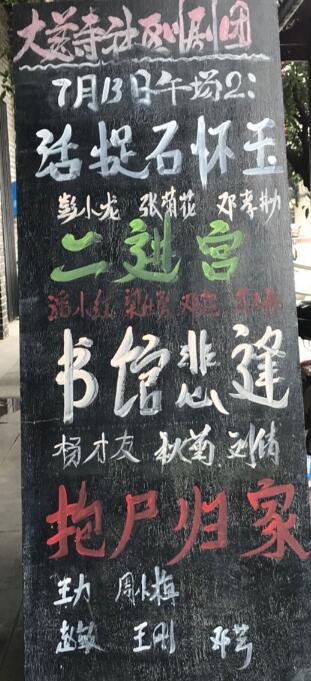 大慈寺社区川剧团
7月13日午场2:
活捉石怀玉
彭小龙 张菊花
二进宫
书馆悲逢
杨才友 秋菊 刘倩
抱尸归家
王力 周小梅
赵敏 王刚 邓芳